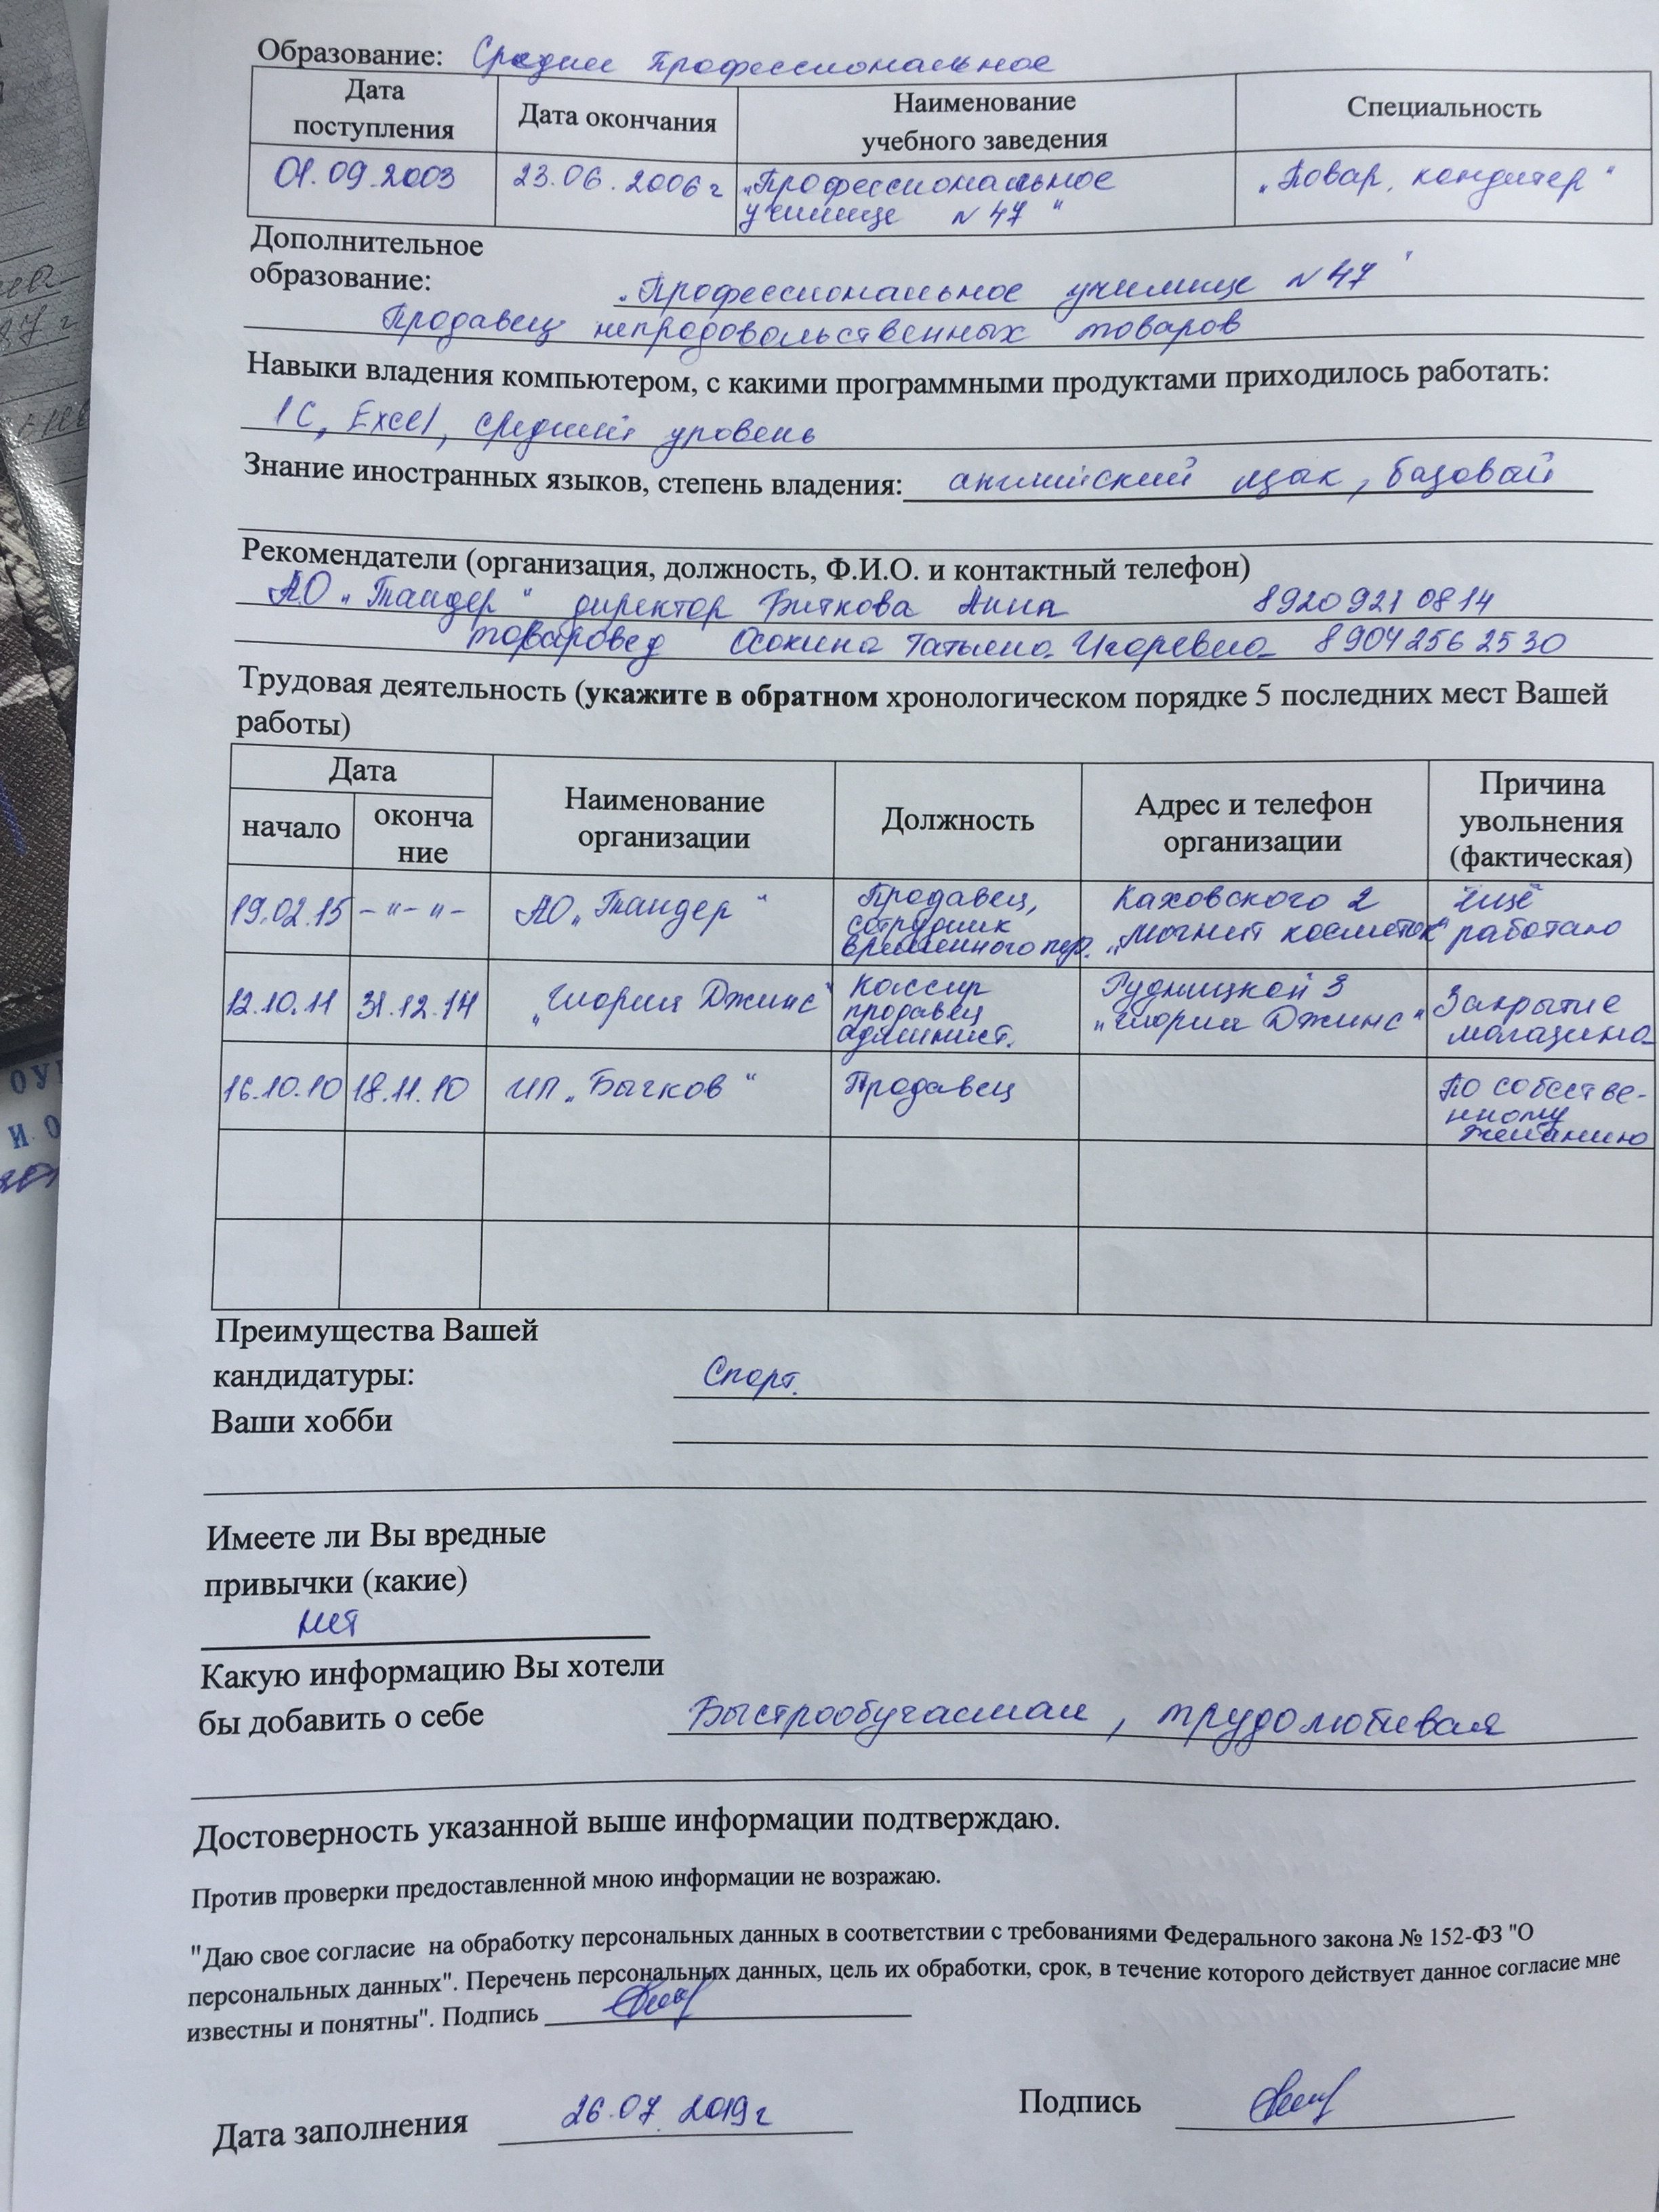 Образование: Среднее Профессиональное
Дата поступления
Дата окончания
Наименование учебного заведения
Специальность
01.09.2003
23.06.2006г
„Профессиональное
училище N 47"
„Повар, кондитер"
Дополнительное
образование: „Профессиональное училище N 47"
Продавец непродовольственных товаров
Навыки владения компьютером, с какими программными продуктами приходилось работать:
1С, Excel, средний уровень
Знание иностранных языков, степень владения: английский язык, базовый
Рекомендатели (организация, должность, Ф.И.О. и контактный телефон)
АО „Тандер" директор Биткова Анна 8920 921 08 14
товаровед Осокина Татьяна Игоревна 8904 256 25 30
Трудовая деятельность (укажите в обратном хронологическом порядке 5 последних мест Вашей
работы)
Дата
начало
оконча
ние
Наименование
организации
Должность
Адрес и телефон
организации
Причина
увольнения
(фактическая)
19.02.15
-"-"-
АО „Тандер"
Продавец,
сотрудник
временного пер.
Каховского 2
„Магнит косметик"
ещё
работаю
12.10.11
31.12.14
„Глория Джинс"
Кассир
продавец
админист.
Рудницкой 3
„Глория Джинс"
Закрытие
магазина
16.10.10
18.11.10
ИП „Бычков"
Продавец
По собстве-
нному
желанию
Преимущества Вашей
кандидатуры: Спорт.
Ваши хобби
Имеете ли Вы вредные
привычки (какие)
нет
Какую информацию Вы хотели
бы добавить о себе Быстрообучаемая, трудолюбивая
Достоверность указанной выше информации подтверждаю.
Против проверки предоставленной мною информации не возражаю.
"Даю свое согласие на обработку персональных данных в соответствии с требованиями Федерального закона № 152-ФЗ "О
персональных данных". Перечень персональных данных, цель их обработки, срок, в течение которого действует данное согласие мне
известны и понятны". Подпись
Дата заполнения 26.07.2019г Подпись